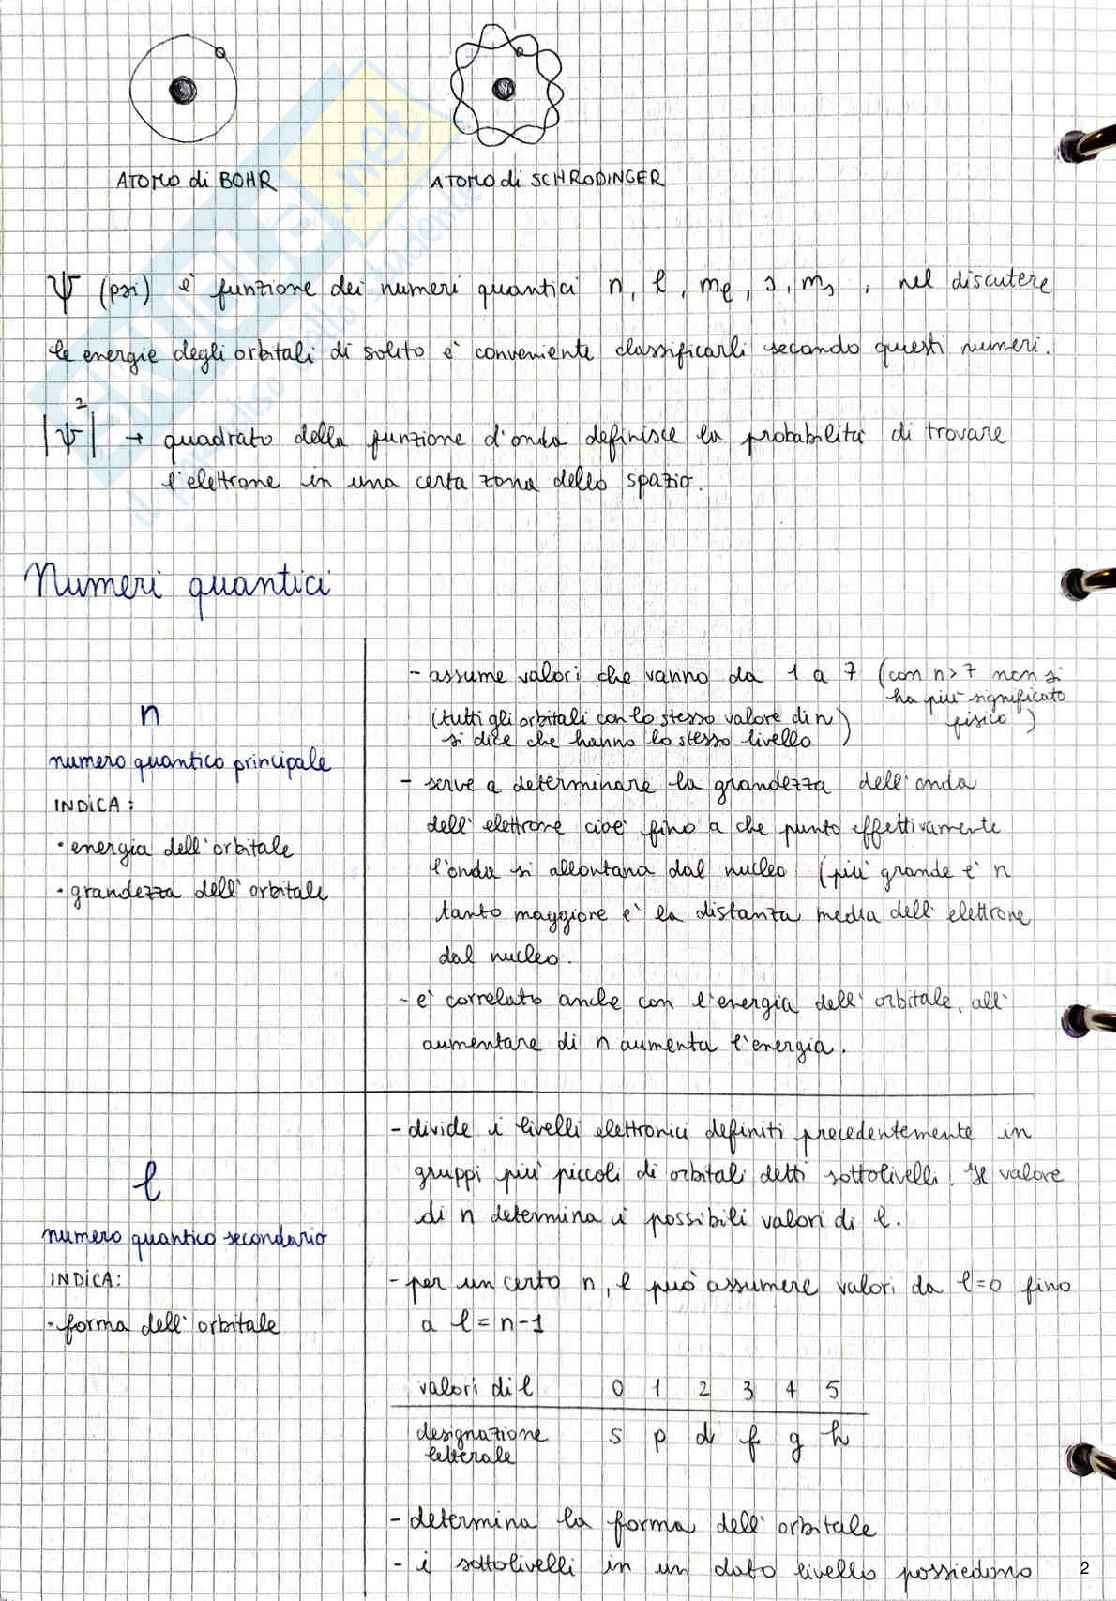 ATOMO di BOHR
ATOMO di SCHRODINGER
Ψ (psi) è funzione dei numeri quantici n, l, mℓ, s, ms, nel discutere
le energie degli orbitali di solito è conveniente classificarli secondo questi numeri.
|Ψ²| → quadrato della funzione d'onda definisce la probabilità di trovare
l'elettrone in una certa zona dello spazio.
Numeri quantici
n
numero quantico principale
INDICA:
• energia dell'orbitale
• grandezza dell'orbitale
- assume valori che vanno da 1 a 7 (con n>7 non si
ha più significato
fisico)
(tutti gli orbitali con lo stesso valore di n)
si dice che hanno lo stesso livello
- serve a determinare la grandezza dell'onda
dell'elettrone cioè fino a che punto effettivamente
l'onda si allontana dal nucleo (più grande è n
tanto maggiore è la distanza media dell'elettrone
dal nucleo.
- è correlato anche con l'energia dell'orbitale, all'
aumentare di n aumenta l'energia.
l
numero quantico secondario
INDICA:
• forma dell'orbitale
- divide i livelli elettronici definiti precedentemente in
gruppi più piccoli di orbitali detti sottolivelli. Il valore
di n determina i possibili valori di l.
- per un certo n, l può assumere valori da l=0 fino
a l=n-1
valori di l 0 1 2 3 4 5
designazione s p d f g h
letterale
- determina la forma dell'orbitale
- i sottolivelli in un dato livello possiedono
2